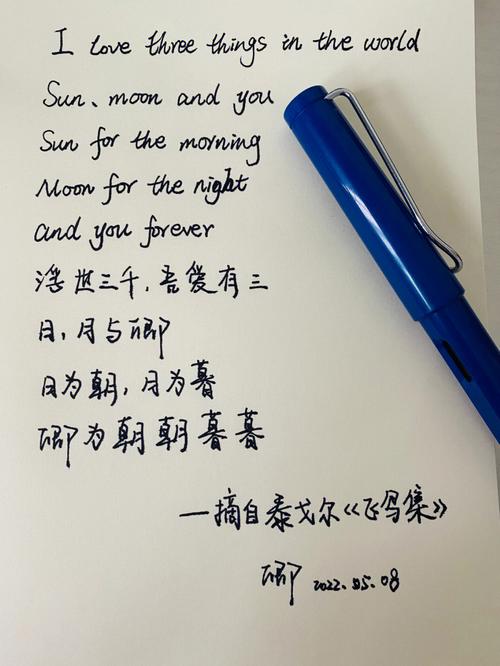 I love three things in the world
Sun、moon and you
Sun for the morning
Moon for the night
and you forever
浮世三千，吾爱有三
日，月与卿
日为朝，月为暮
卿为朝朝暮暮
—摘自泰戈尔《飞鸟集》
卿 2022.05.08